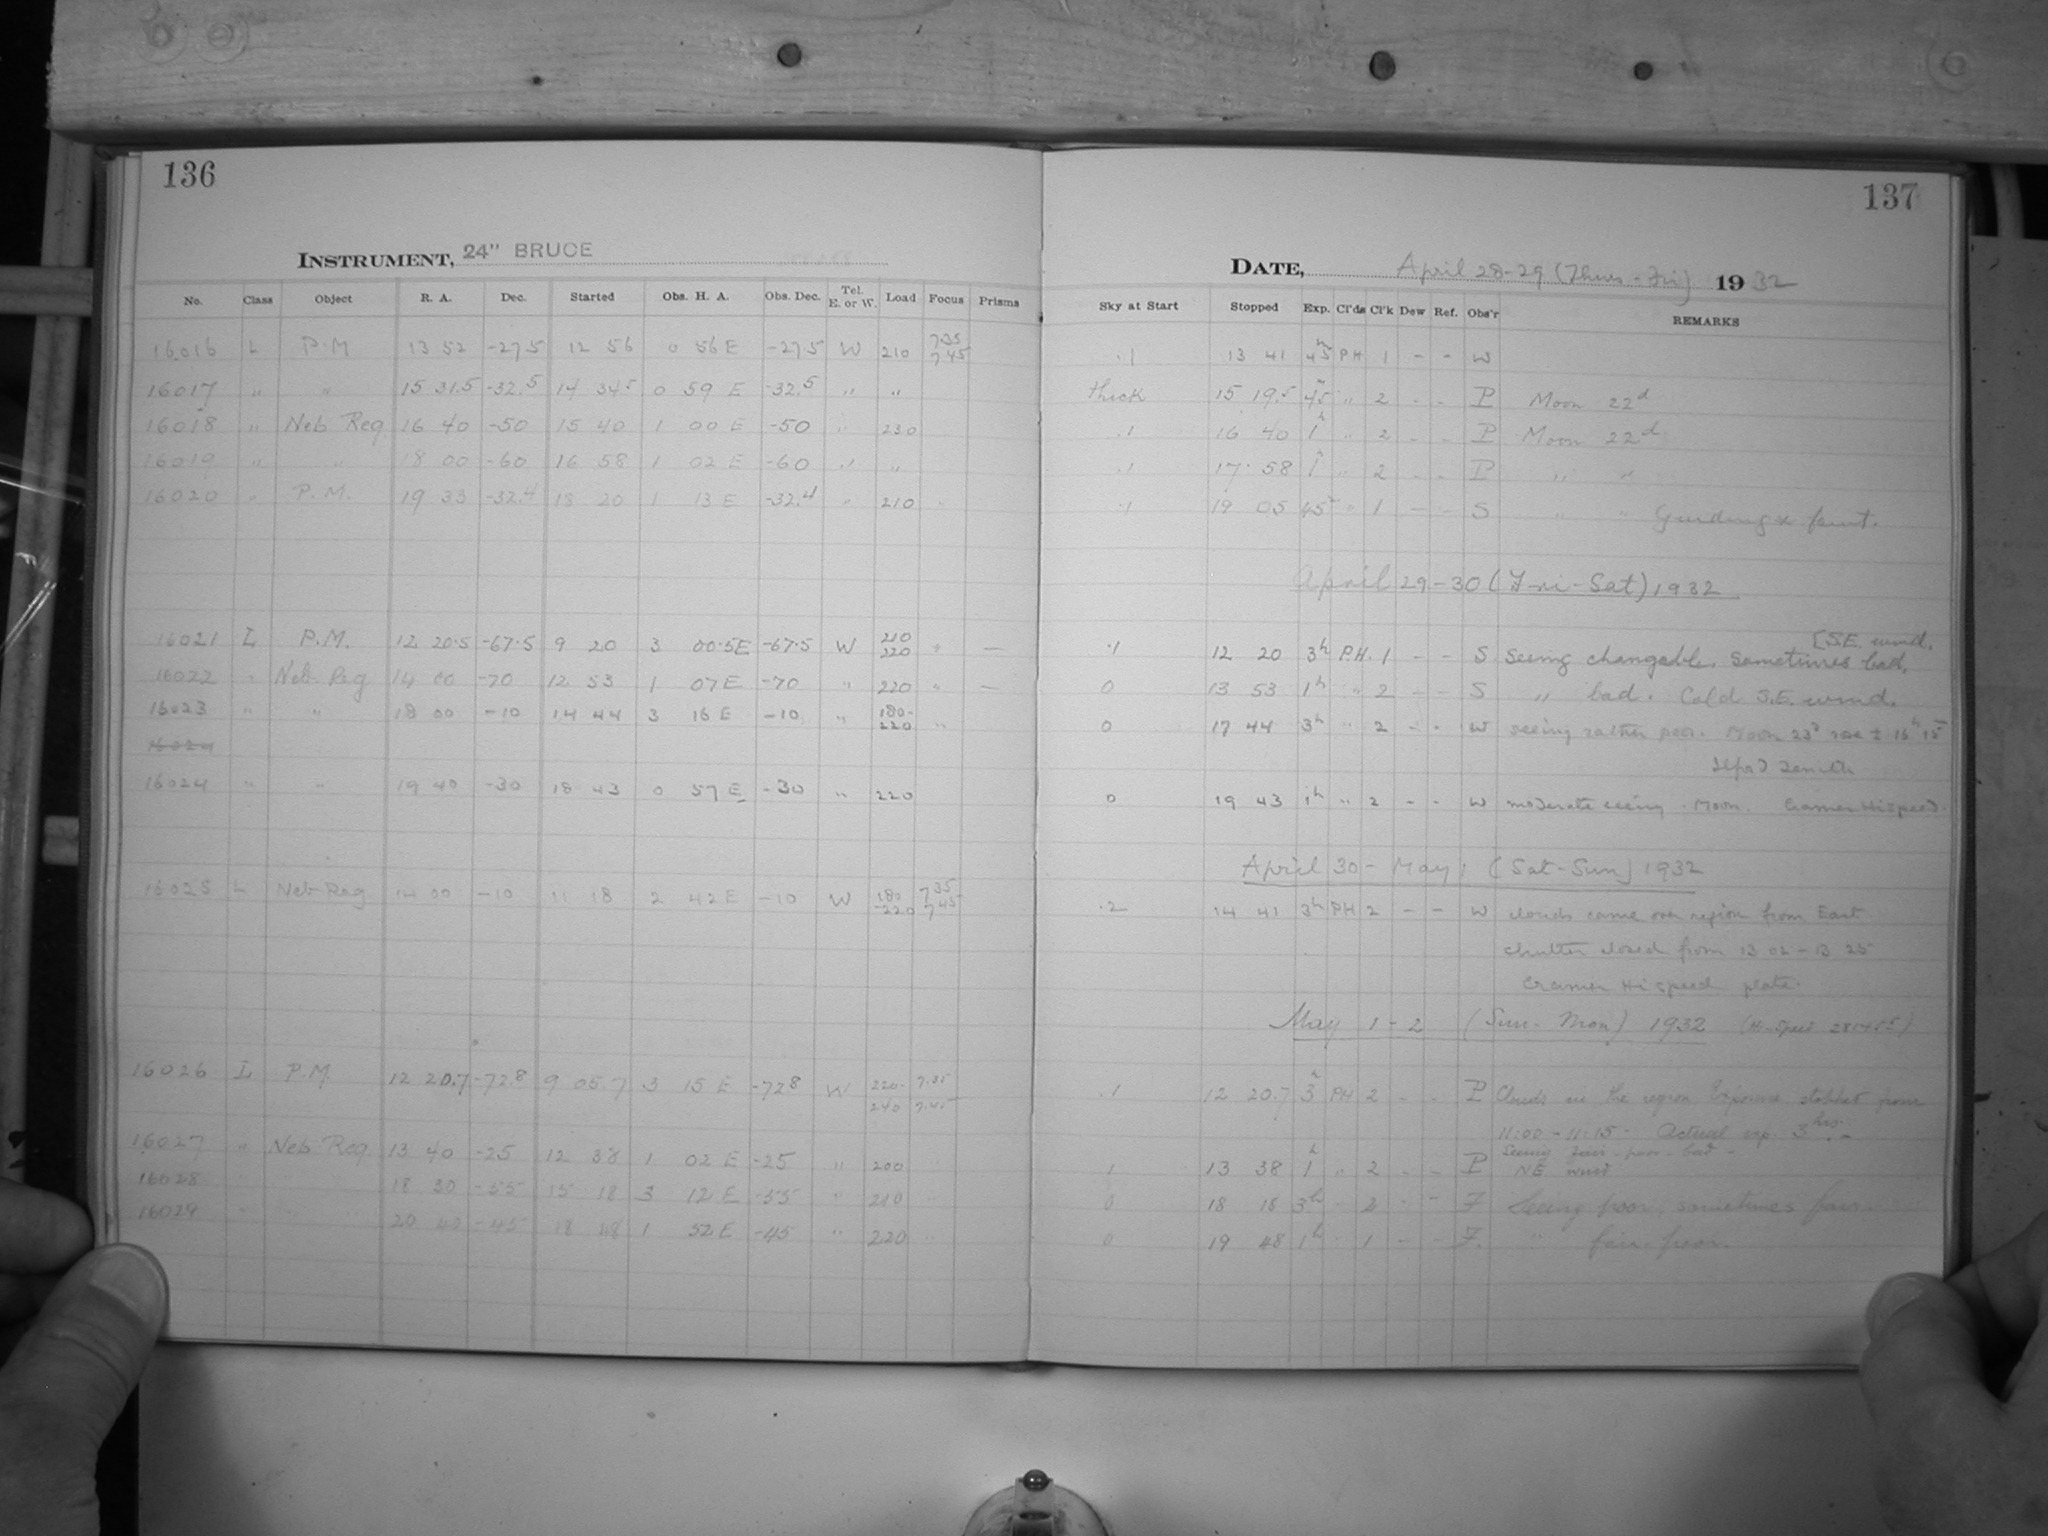 136
INSTRUMENT, 24" BRUCE
No. Class Object R. A. Dec. Started Obs. H. A. Obs. Dec. Tel. E. or W. Load Focus Prisms
16016 L P.M 13 52 -27.5 12 56 0 56 E -27.5 W 210 7.35 7.45
16017 " " 15 31.5 -32.5 14 34.5 0 59 E -32.5 " "
16018 " Neb Reg 16 40 -50 15 40 1 00 E -50 " 230
16019 " " 18 00 -60 16 58 1 02 E -60 " "
16020 " P.M. 19 33 -32.4 18 20 1 13 E -32.4 " 210 "
16021 L P.M. 12 20.5 -67.5 9 20 3 00.5E -67.5 W 210 220 " —
16022 " Neb. Reg 14 00 -70 12 53 1 07 E -70 " 220 " —
16023 " " 18 00 -10 14 44 3 16 E -10 " 180- 220 "
16024
16024 " " 19 40 -30 18 43 0 57 E -30 " 220
16025 L Neb Reg 14 00 -10 11 18 2 42 E -10 W 180 -220 7.35 7.45
16026 L P.M. 12 20.7 -72.8 9 05.7 3 15 E -72.8 W 220- 240 7.35 7.45
16027 " Neb Reg 13 40 -25 12 38 1 02 E -25 " 200 "
16028 18 30 -55 15 18 3 12 E -55 " 210 "
16029 " 20 40 -45 18 48 1 52 E -45 " 220 "
137
DATE, April 28-29 (Thurs-Fri) 1932
Sky at Start Stopped Exp. Cl'ds Cl'k Dew Ref. Obs'r REMARKS
.1 13 41 45 PH 1 - - W
thick 15 19.5 45 " 2 - - P Moon 22d
.1 16 40 1h " 2 - - P Moon 22d
.1 17 58 1h " 2 - - P " "
.1 19 05 45 " 1 - - S " " Guiding x faint.
April 29-30 (Fri-Sat) 1932
[S.E. wind.
.1 12 20 3h P.H. 1 - - S Seeing changable. Sometimes bad.
0 13 53 1h " 2 - - S " bad. Cold S.E. wind.
0 17 44 3h " 2 - - W seeing rather poor. Moon 23d rose ± 16h 15
zenith
0 19 43 1h " 2 - - W moderate seeing. Moon. Cramer Hispeed.
April 30 - May 1 (Sat-Sun) 1932
.2 14 41 3h PH 2 - - W clouds came over region from East
shutter closed from 13 02 - 13 25
Cramer Hi speed plate.
May 1-2 (Sun-Mon) 1932
.1 12 20.7 3h PH 2 - - P Clouds in the region Exposure stopped from
11:00 - 11:15 - Actual exp. 3hrs. -
Seeing fair-poor-bad -
1 13 38 1h " 2 - - P NE wind
0 18 18 3h 2 - - F Seeing poor, sometimes fair.
0 19 48 1h 1 - - F. " fair-poor.